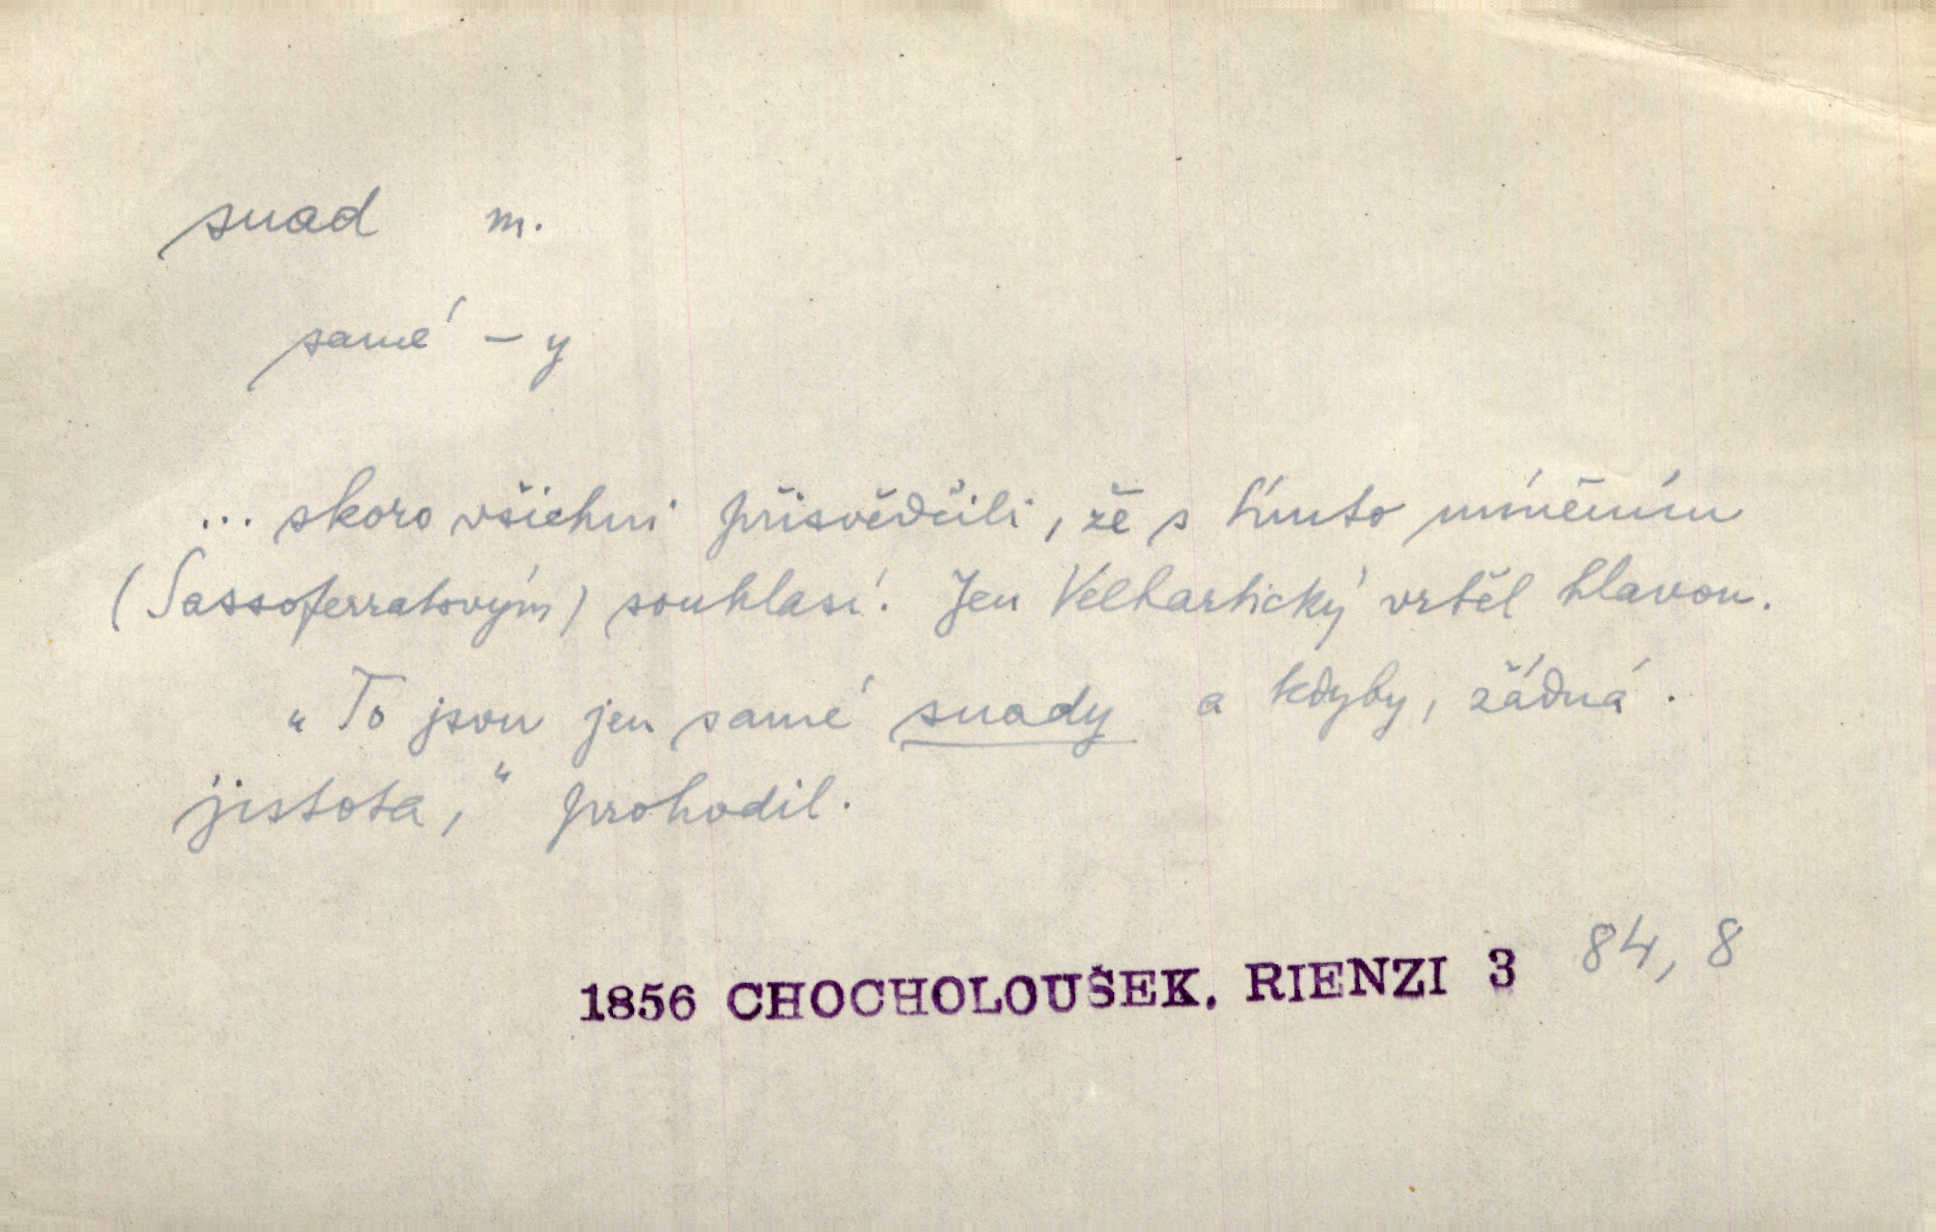 snad m.
samé – y
... skoro všichni přisvědčili, že s tímto míněním
(Sassoferratovým) souhlasí. Jen Velhartický vrtěl hlavou.
„To jsou jen samé snady a kdyby, žádná.
jistota,“ prohodil.
1856 CHOCHOLOUŠEK, RIENZI 3 84, 8